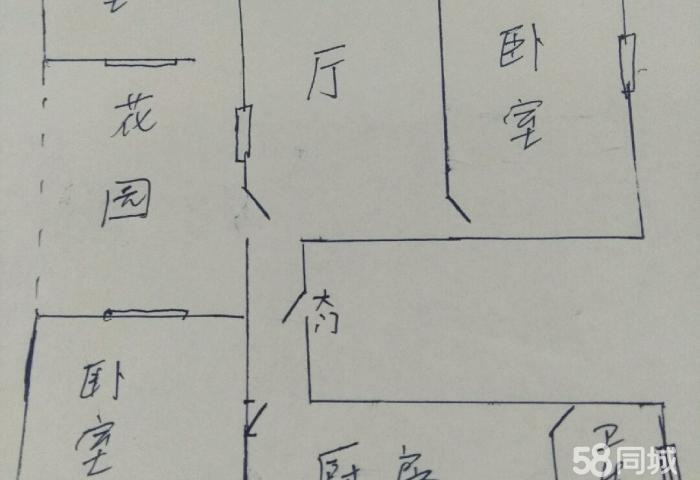 厅
卧室
花园
大门
卧室
厨房
卫
58同城